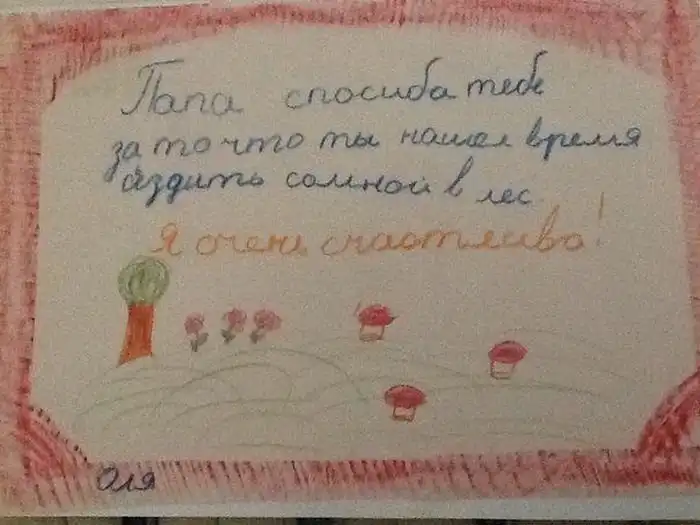 Папа спосиба тебе
за то что ты нашел время
яздить сомной в лес
Я очень счастлива!
Оля